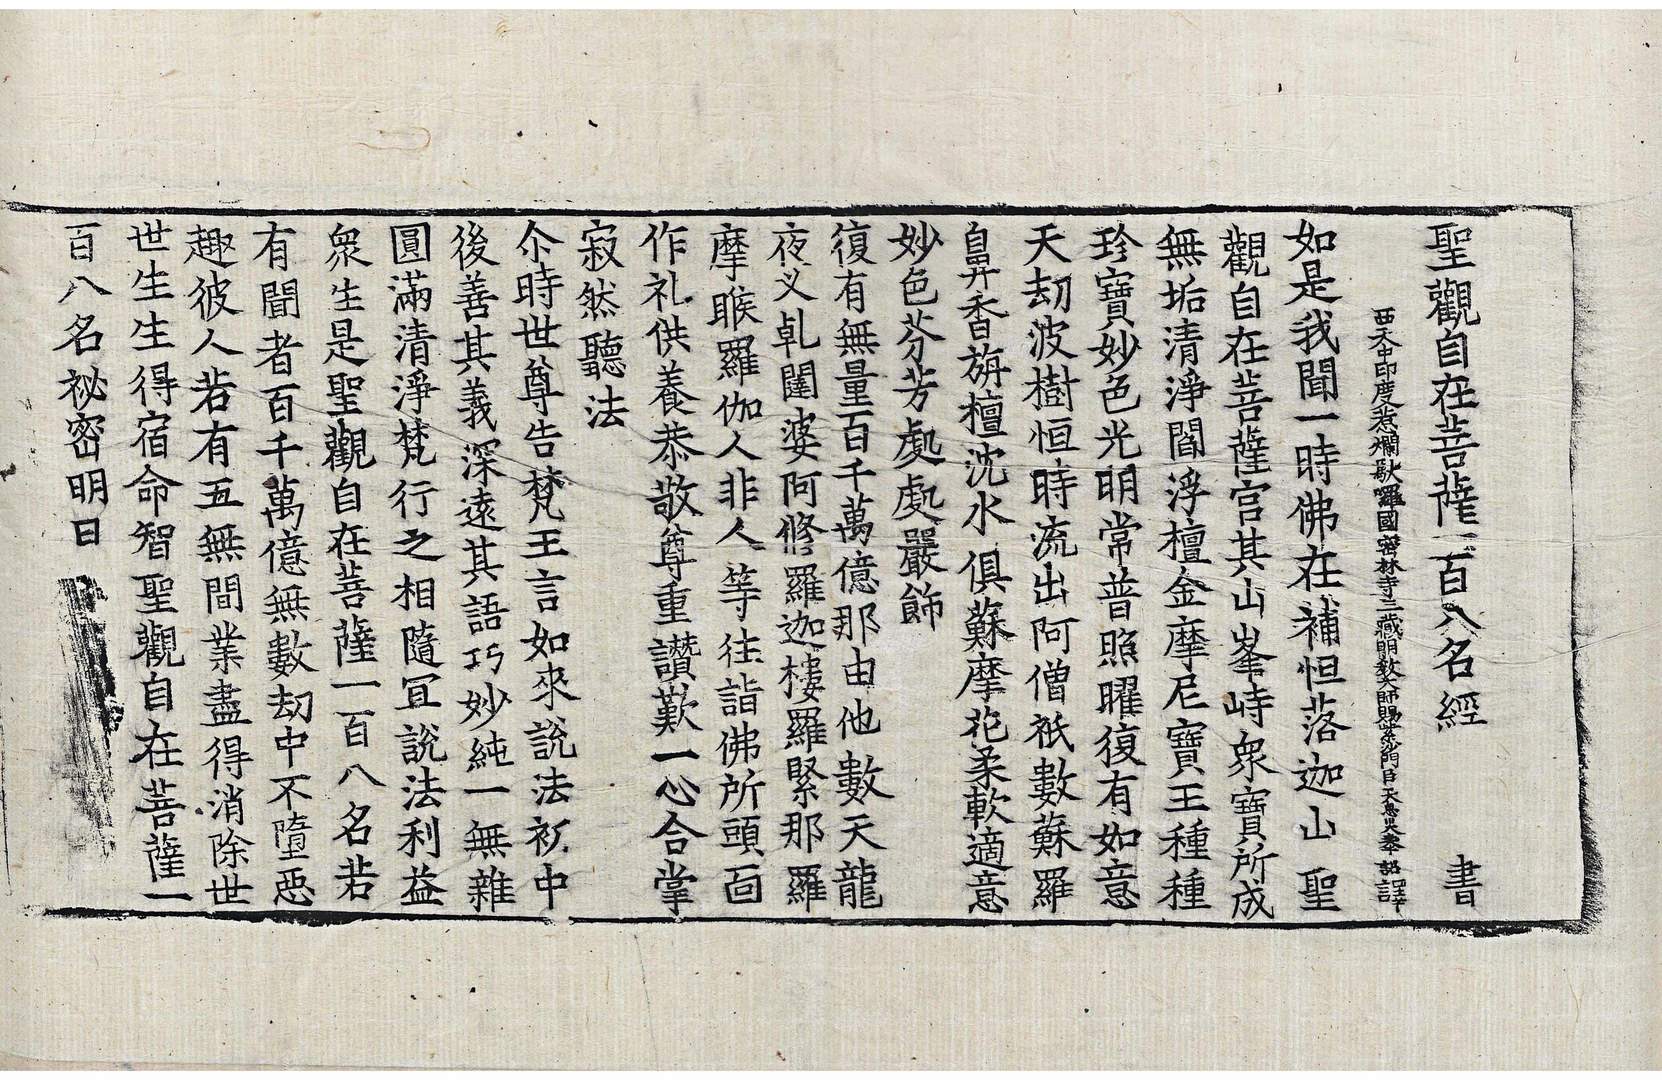 聖觀自在菩薩一百八名經　書
西天中印度惹爛馱囉國密林寺三藏明教大師賜紫沙門臣天息災奉　詔譯
如是我聞一時佛在補怛落迦山　聖
觀自在菩薩宮其山峯峙衆寶所成
無垢清淨閻浮檀金摩尼寶王種種
珍寶妙色光明常普照曜復有如意
天刧波樹恒時流出阿僧祇數蘇羅
鼻香旃檀沈水俱蘇摩花柔軟適意
妙色芬芳處處嚴飾
復有無量百千萬億那由他數天龍
夜叉乹闥婆阿修羅迦樓羅緊那羅
摩睺羅伽人非人等往詣佛所頭靣
作礼供養恭敬尊重讚歎一心合掌
寂然聽法
尒時世尊告梵王言如來說法初中
後善其義深遠其語巧妙純一無雜
圓滿清淨梵行之相隨冝說法利益
衆生是聖觀自在菩薩一百八名若
有聞者百千萬億無數刧中不墮惡
趣彼人若有五無間業盡得消除世
世生生得宿命智聖觀自在菩薩一
百八名祕密明曰